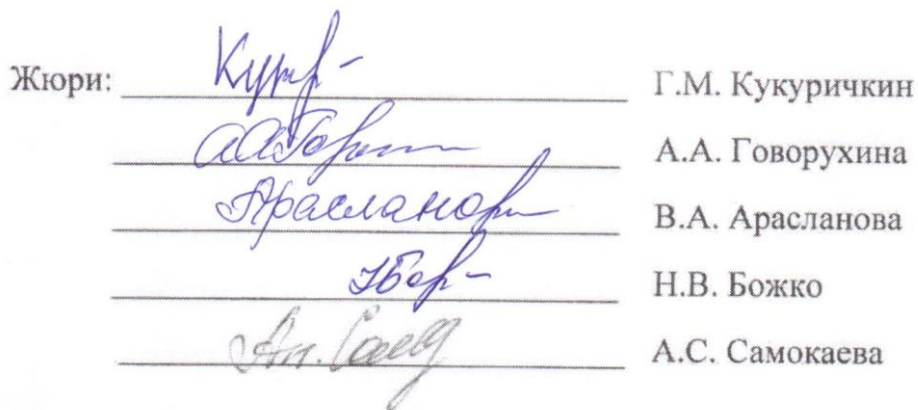 Жюри: Г.М. Кукуричкин
А.А. Говорухина
Арасланов В.А. Арасланова
Н.В. Божко
А.С. Самокаева